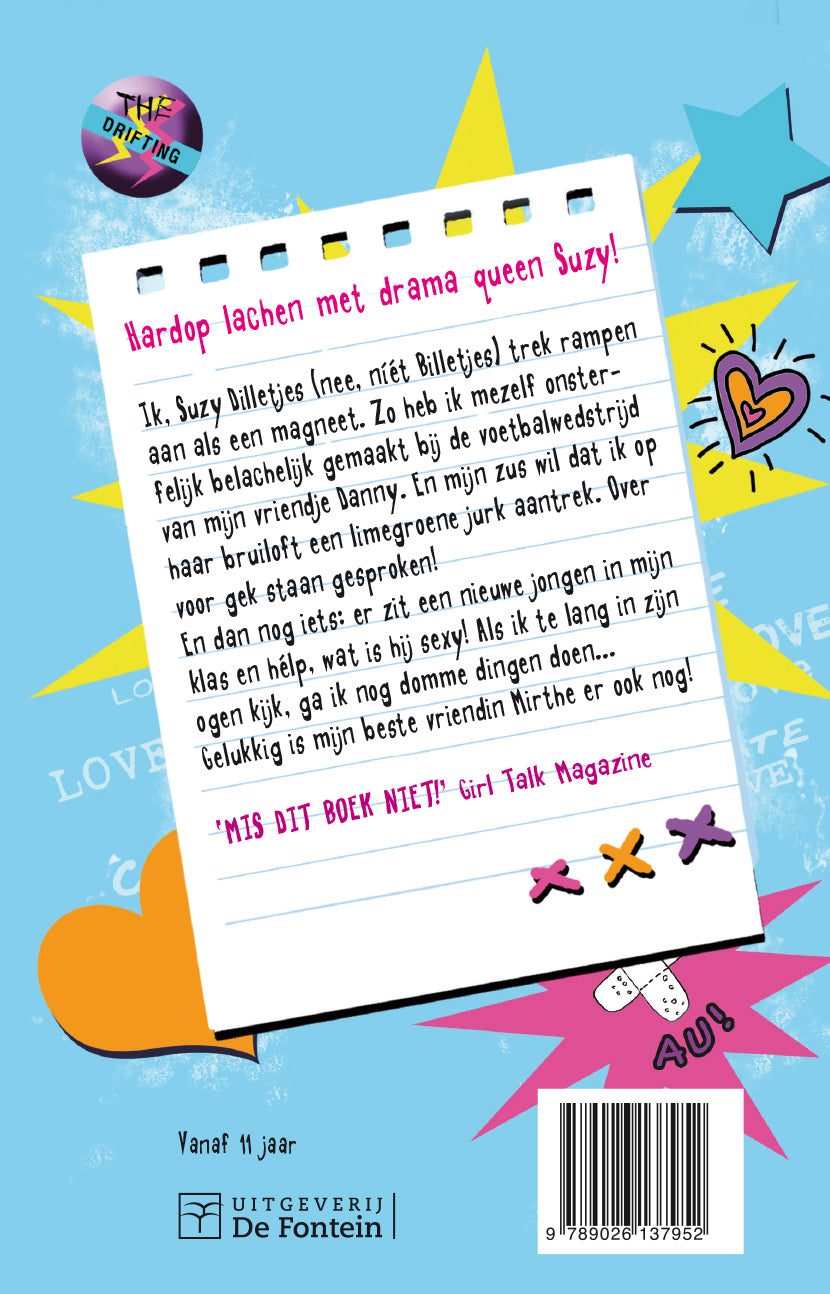 THE
DRIFTING
Hardop lachen met drama queen Suzy!
Ik, Suzy Dilletjes (nee, níét Billetjes) trek rampen
aan als een magneet. Zo heb ik mezelf onster-
felijk belachelijk gemaakt bij de voetbalwedstrijd
van mijn vriendje Danny. En mijn zus wil dat ik op
haar bruiloft een limegroene jurk aantrek. Over
voor gek staan gesproken!
En dan nog iets: er zit een nieuwe jongen in mijn
klas en hélp, wat is hij sexy! Als ik te lang in zijn
ogen kijk, ga ik nog domme dingen doen...
Gelukkig is mijn beste vriendin Mirthe er ook nog!
'MIS DIT BOEK NIET!' Girl Talk Magazine
LO
LOVE
AU!
Vanaf 11 jaar
UITGEVERIJ
De Fontein
9 789026 137952